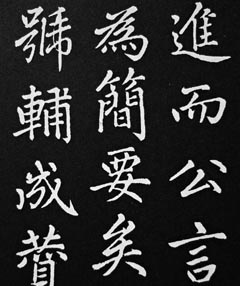 進而公言
為簡要矣
號輔成贊